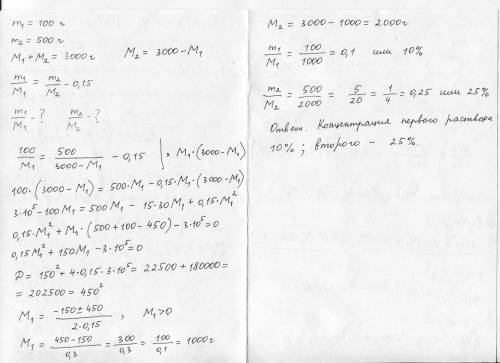 m₁ = 100 г
m₂ = 500 г
M₁ + M₂ = 3000 г    M₂ = 3000 - M₁
m₁/M₁ = m₂/M₂ - 0,15
m₁/M₁ - ?    m₂/M₂ - ?
100/M₁ = 500/(3000 - M₁) - 0,15 | × M₁·(3000-M₁)
100·(3000 - M₁) = 500·M₁ - 0,15·M₁·(3000-M₁)
3·10⁵ - 100M₁ = 500M₁ - 15·30M₁ + 0,15·M₁²
0,15M₁² + M₁·(500+100-450) - 3·10⁵ = 0
0,15M₁² + 150M₁ - 3·10⁵ = 0
D = 150² + 4·0,15·3·10⁵ = 22500 + 180000 =
= 202500 = 450²
M₁ = (-150 ± 450)/(2·0,15) ,    M₁ > 0
M₁ = (450-150)/0,3 = 300/0,3 = 100/0,1 = 1000 г
M₂ = 3000 - 1000 = 2000 г
m₁/M₁ = 100/1000 = 0,1 или 10%
m₂/M₂ = 500/2000 = 5/20 = 1/4 = 0,25 или 25%
Ответ. Концентрация первого раствора
10% ; второго - 25%.